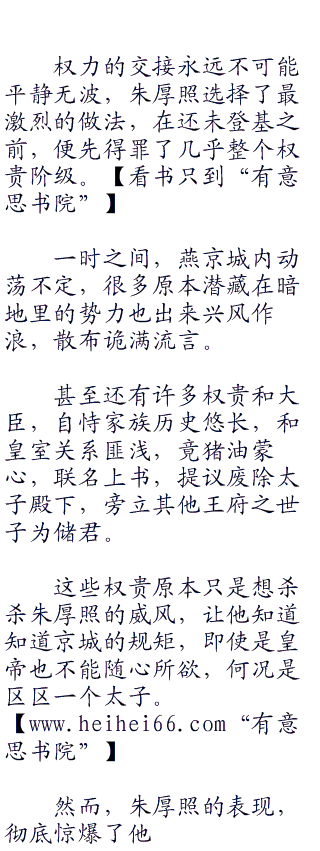 权力的交接永远不可能
平静无波，朱厚照选择了最
激烈的做法，在还未登基之
前，便先得罪了几乎整个权
贵阶级。【看书只到“有意
思书院”】
一时之间，燕京城内动
荡不定，很多原本潜藏在暗
地里的势力也出来兴风作
浪，散布诡满流言。
甚至还有许多权贵和大
臣，自恃家族历史悠长，和
皇室关系匪浅，竟猪油蒙
心，联名上书，提议废除太
子殿下，旁立其他王府之世
子为储君。
这些权贵原本只是想杀
杀朱厚照的威风，让他知道
知道京城的规矩，即使是皇
帝也不能随心所欲，何况是
区区一个太子。
【www.heihei66.com“有意
思书院”】
然而，朱厚照的表现，
彻底惊爆了他